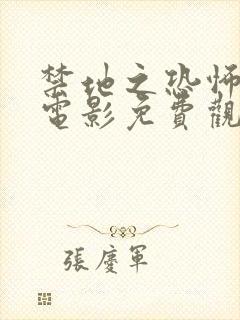 禁地之恐怖
電影免費觀
張慶軍